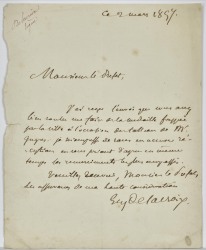 Ce 2 mars 1857
Monsieur le Préfet,
J'ai reçu l'envoi que vous avez
bien voulu me faire de la médaille frappée
par la ville à l'occasion du tableau de Mr
je m'empresse de vous en accuser
réception en vous priant d'agréer en même
temps les remerciements les plus empressés.
Veuillez recevoir, Monsieur le Préfet,
les assurances de ma haute considération
Eug Delacroix